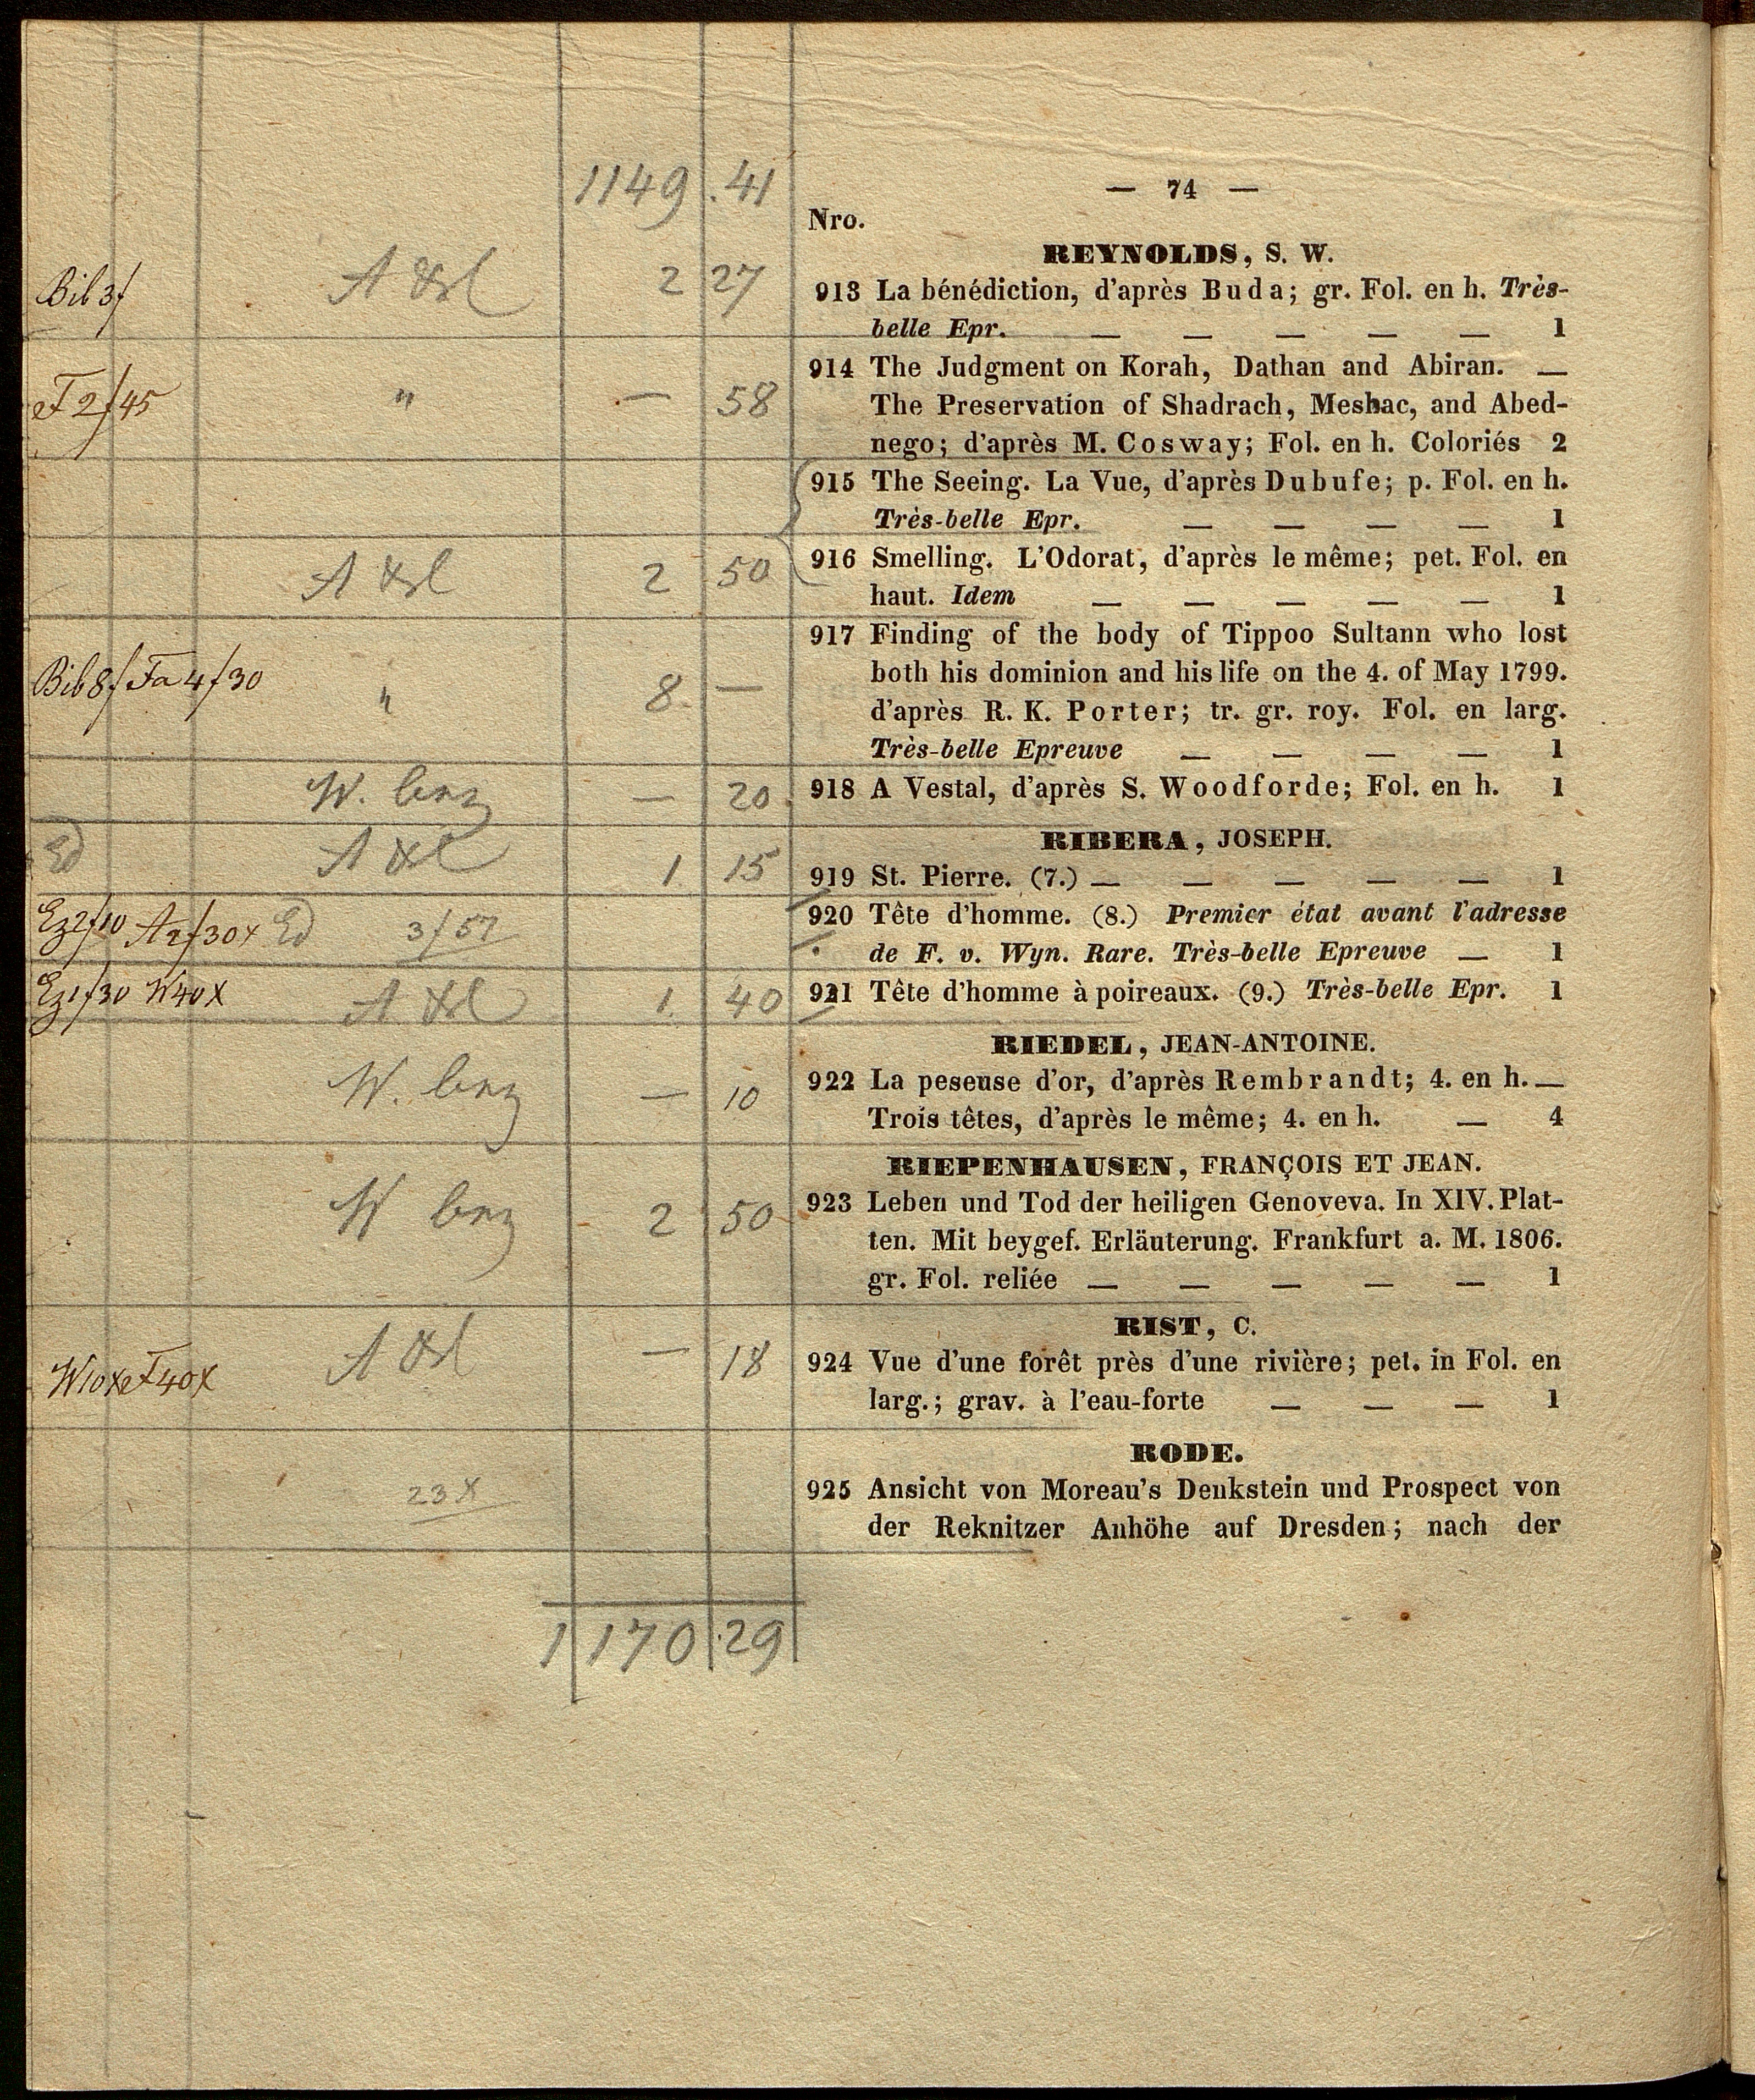 1149 . 41
— 74 —
Nro.
REYNOLDS, S. W.
Bib 3f 2 27
913 La bénédiction, d'après Buda; gr. Fol. en h. Très-
belle Epr. — — — — — 1
914 The Judgment on Korah, Dathan and Abiran. —
2f45 " — 58
The Preservation of Shadrach, Meshac, and Abed-
nego; d'après M. Cosway; Fol. en h. Coloriés 2
915 The Seeing. La Vue, d'après Dubufe; p. Fol. en h.
Très-belle Epr. — — — — 1
2 50
916 Smelling. L'Odorat, d'après le même; pet. Fol. en
haut. Idem — — — — — 1
917 Finding of the body of Tippoo Sultann who lost
both his dominion and his life on the 4. of May 1799.
Bib 8f Fa 4f30 " 8 —
d'après R. K. Porter; tr. gr. roy. Fol. en larg.
Très-belle Epreuve — — — — 1
W. — 20
918 A Vestal, d'après S. Woodforde; Fol. en h. 1
RIBERA, JOSEPH.
Ed 1 15
919 St. Pierre. (7.) — — — — — 1
Ez2f10 A2f30x Ed 3f57
920 Tête d'homme. (8.) Premier état avant l'adresse
de F. v. Wyn. Rare. Très-belle Epreuve — 1
Ez1f30 W40x 1 40
921 Tête d'homme à poireaux. (9.) Très-belle Epr. 1
RIEDEL, JEAN-ANTOINE.
W. — 10
922 La peseuse d'or, d'après Rembrandt; 4. en h. —
Trois têtes, d'après le même; 4. en h. — 4
RIEPENHAUSEN, FRANÇOIS ET JEAN.
W 2 50
923 Leben und Tod der heiligen Genoveva. In XIV. Plat-
ten. Mit beygef. Erläuterung. Frankfurt a. M. 1806.
gr. Fol. reliée — — — — — 1
RIST, C.
W10x 40x — 18
924 Vue d'une forêt près d'une rivière; pet. in Fol. en
larg.; grav. à l'eau-forte — — — 1
RODE.
23x
925 Ansicht von Moreau's Denkstein und Prospect von
der Reknitzer Anhöhe auf Dresden; nach der
1170.29